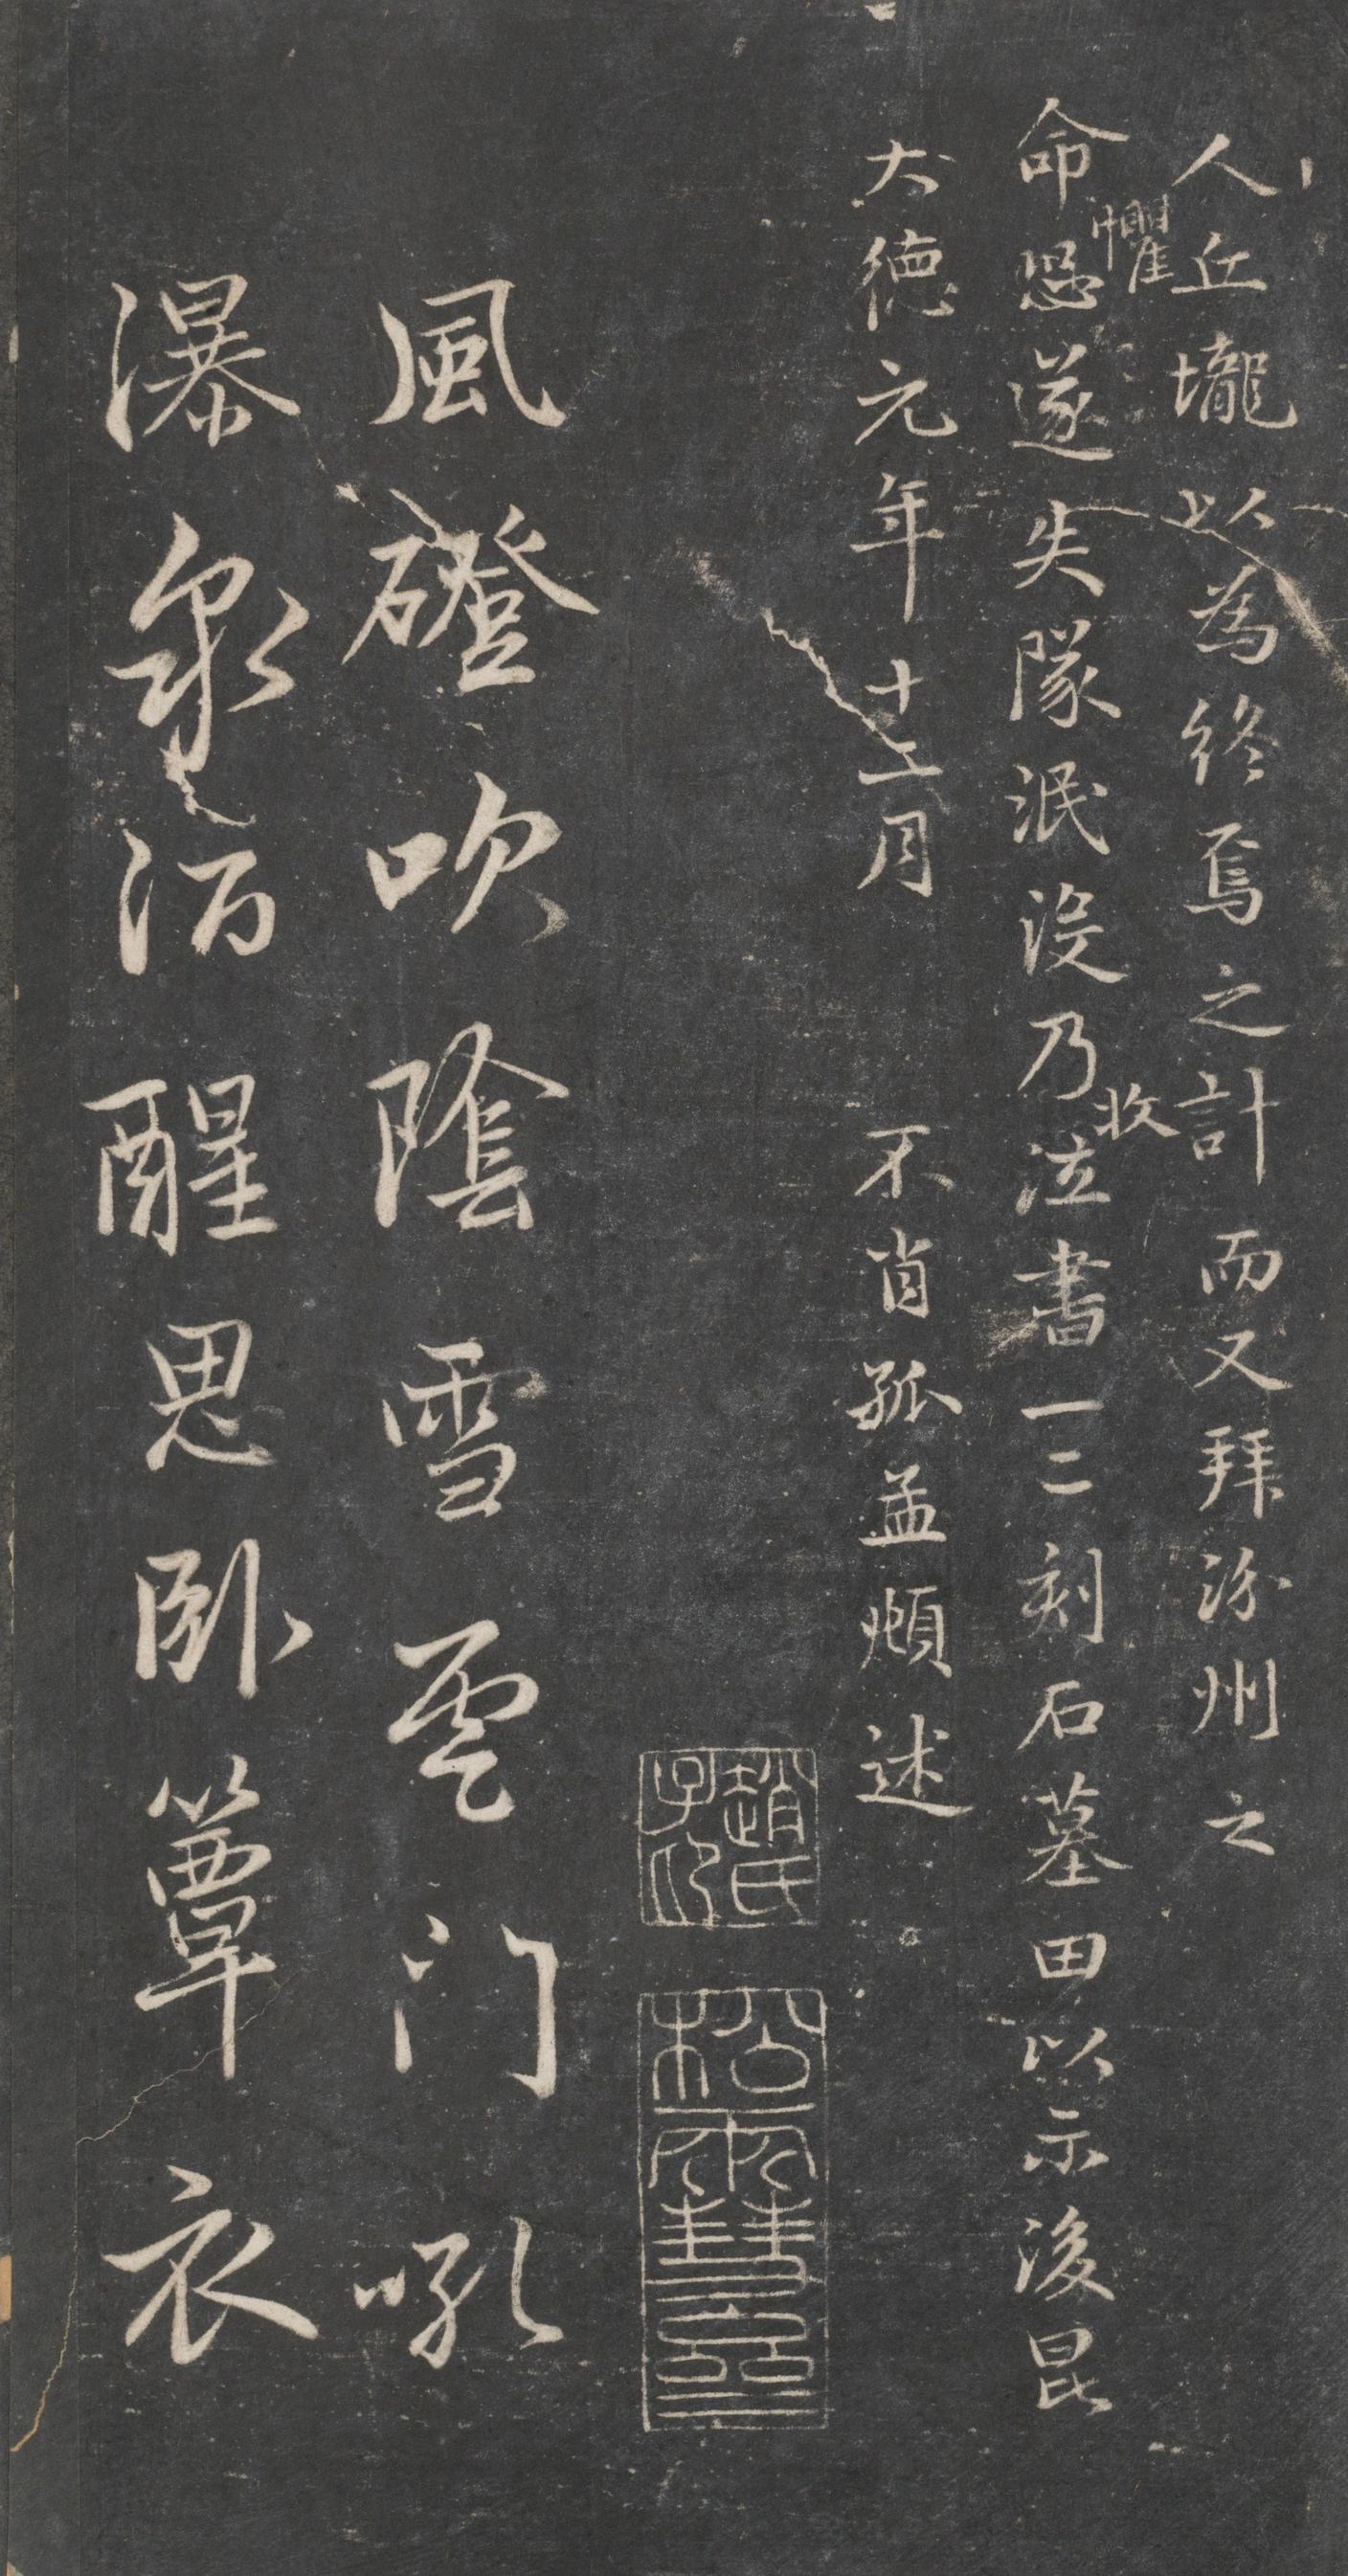 人丘壠以為終焉之計而又拜汾州之
命恐懼遂失隊泯沒乃收泣書一二刻石墓田以示後昆
大德元年十二月 不肖孤孟頫述
趙氏子卬
松雪齋
風磴吹陰雪雲門吼
瀑泉酒醒思臥簟衣